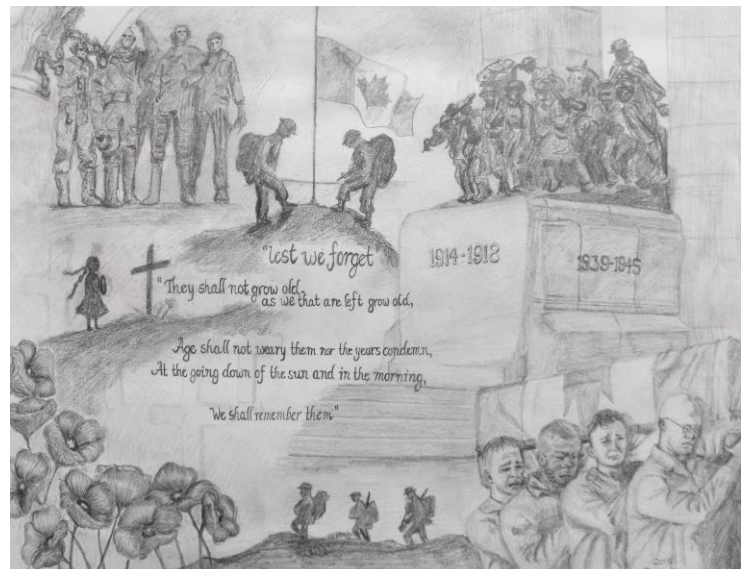 "lest we forget"
1914-1918
1939-1945
"They shall not grow old,
as we that are left grow old,
Age shall not weary them nor the years condemn,
At the going down of the sun and in the morning,
"We shall remember them"